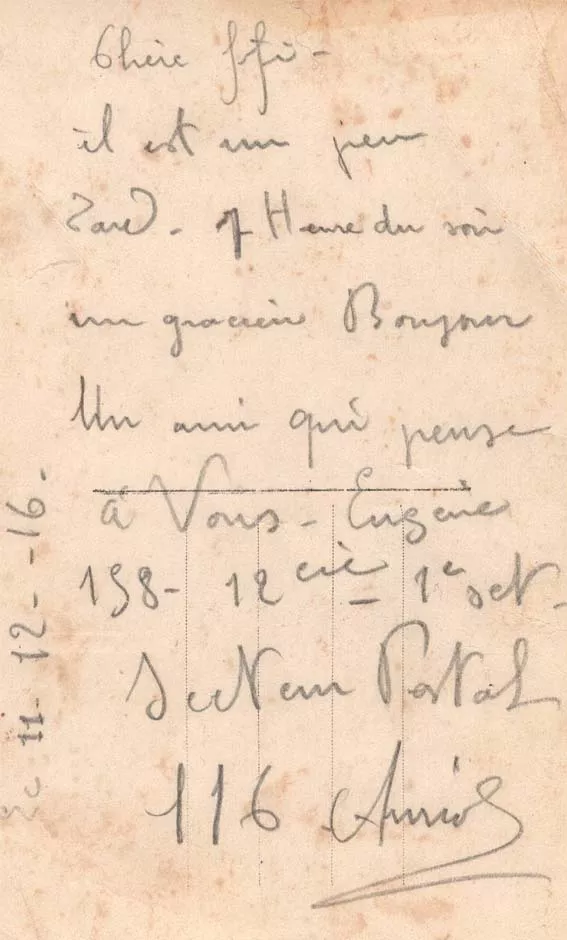 Chère Fifi -
il est un peu
Tard. 7 Heure du soir
un gracieu Bonjour
Un ami qui pense
à Vous - Eugène
158 - 12eie - 1e sct -
Secteur Postal
116 Auriol
Le 11 - 12 - -16 -